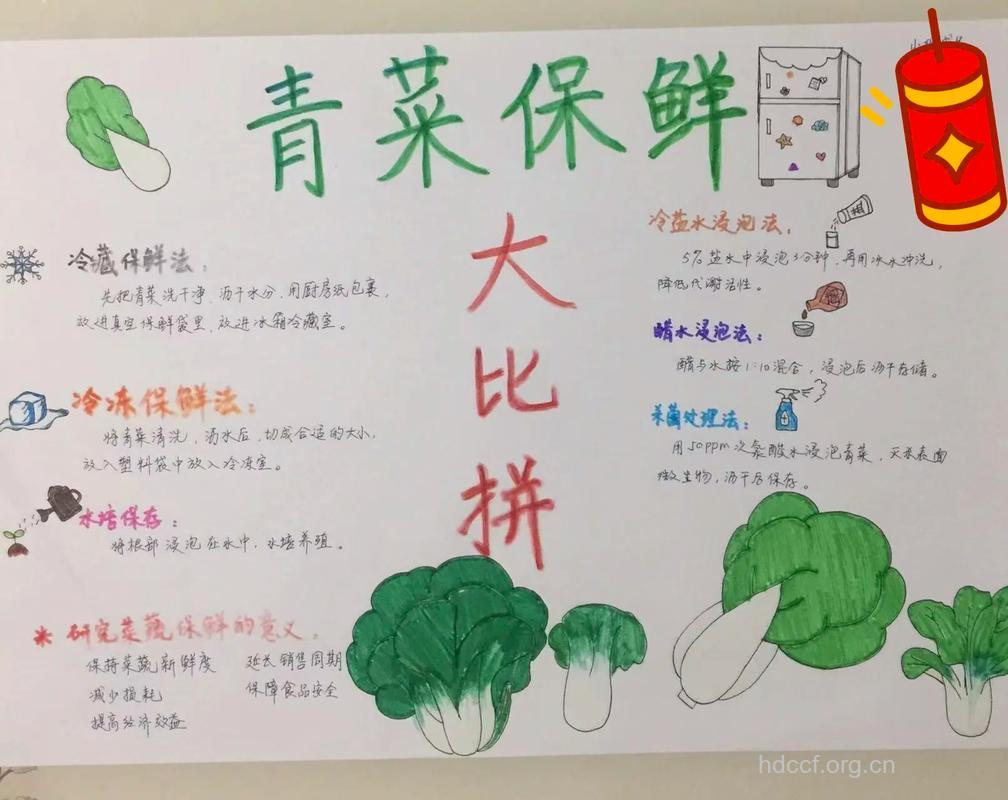 青菜保鲜
大
比
拼
冷藏保鲜法：
先把青菜洗干净，沥干水分，用厨房纸包裹，
放进真空保鲜袋里，放进冰箱冷藏室。
冷冻保鲜法：
将青菜清洗，沥水后，切成合适的大小，
放入塑料袋中放入冷冻室。
水培保存：
将根部浸泡在水中，水培养殖。
研究菜蔬保鲜的意义：
保持菜蔬新鲜度 延长销售周期
减少损耗 保障食品安全
提高经济效益
冷盐水浸泡法：
5% 盐水中浸泡3分钟，再用冰水冲洗，
降低代谢活性。
醋水浸泡法：
醋与水按1:10混合，浸泡后沥干存储。
杀菌处理法：
用50ppm次氯酸水浸泡青菜，灭杀表面
微生物，沥干后保存。
hdccf.org.cn